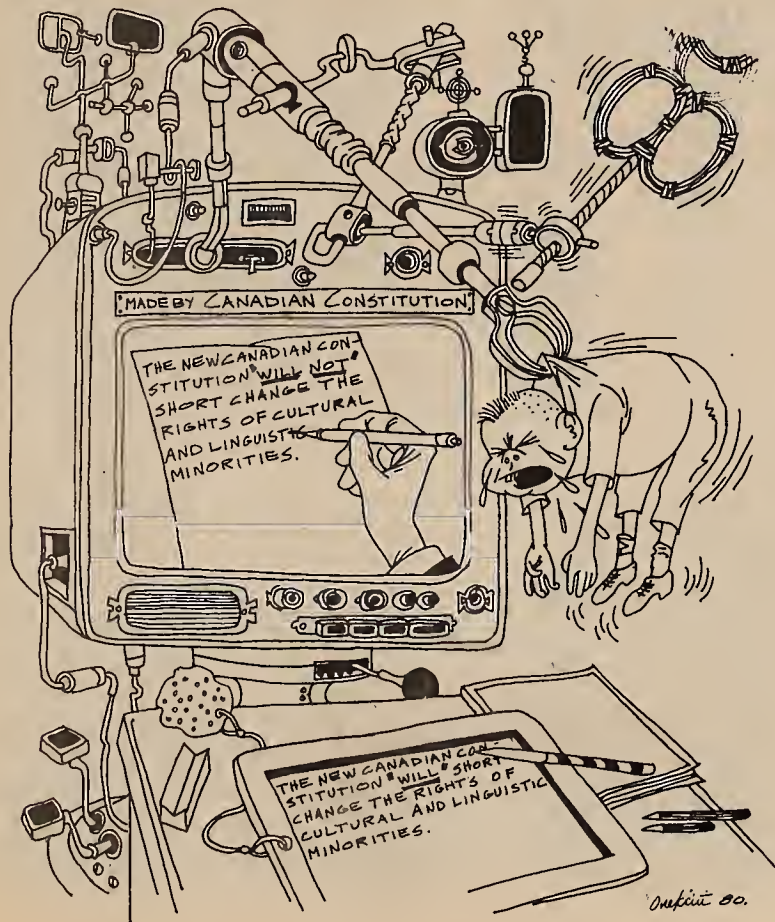 MADE BY CANADIAN CONSTITUTION
THE NEW CANADIAN CON-
STITUTION "WILL NOT"
SHORT CHANGE THE
RIGHTS OF CULTURAL
AND LINGUISTIC
MINORITIES.
THE NEW CANADIAN CON-
STITUTION "WILL" SHORT
CHANGE THE RIGHTS OF
CULTURAL AND LINGUISTIC
MINORITIES.
80.